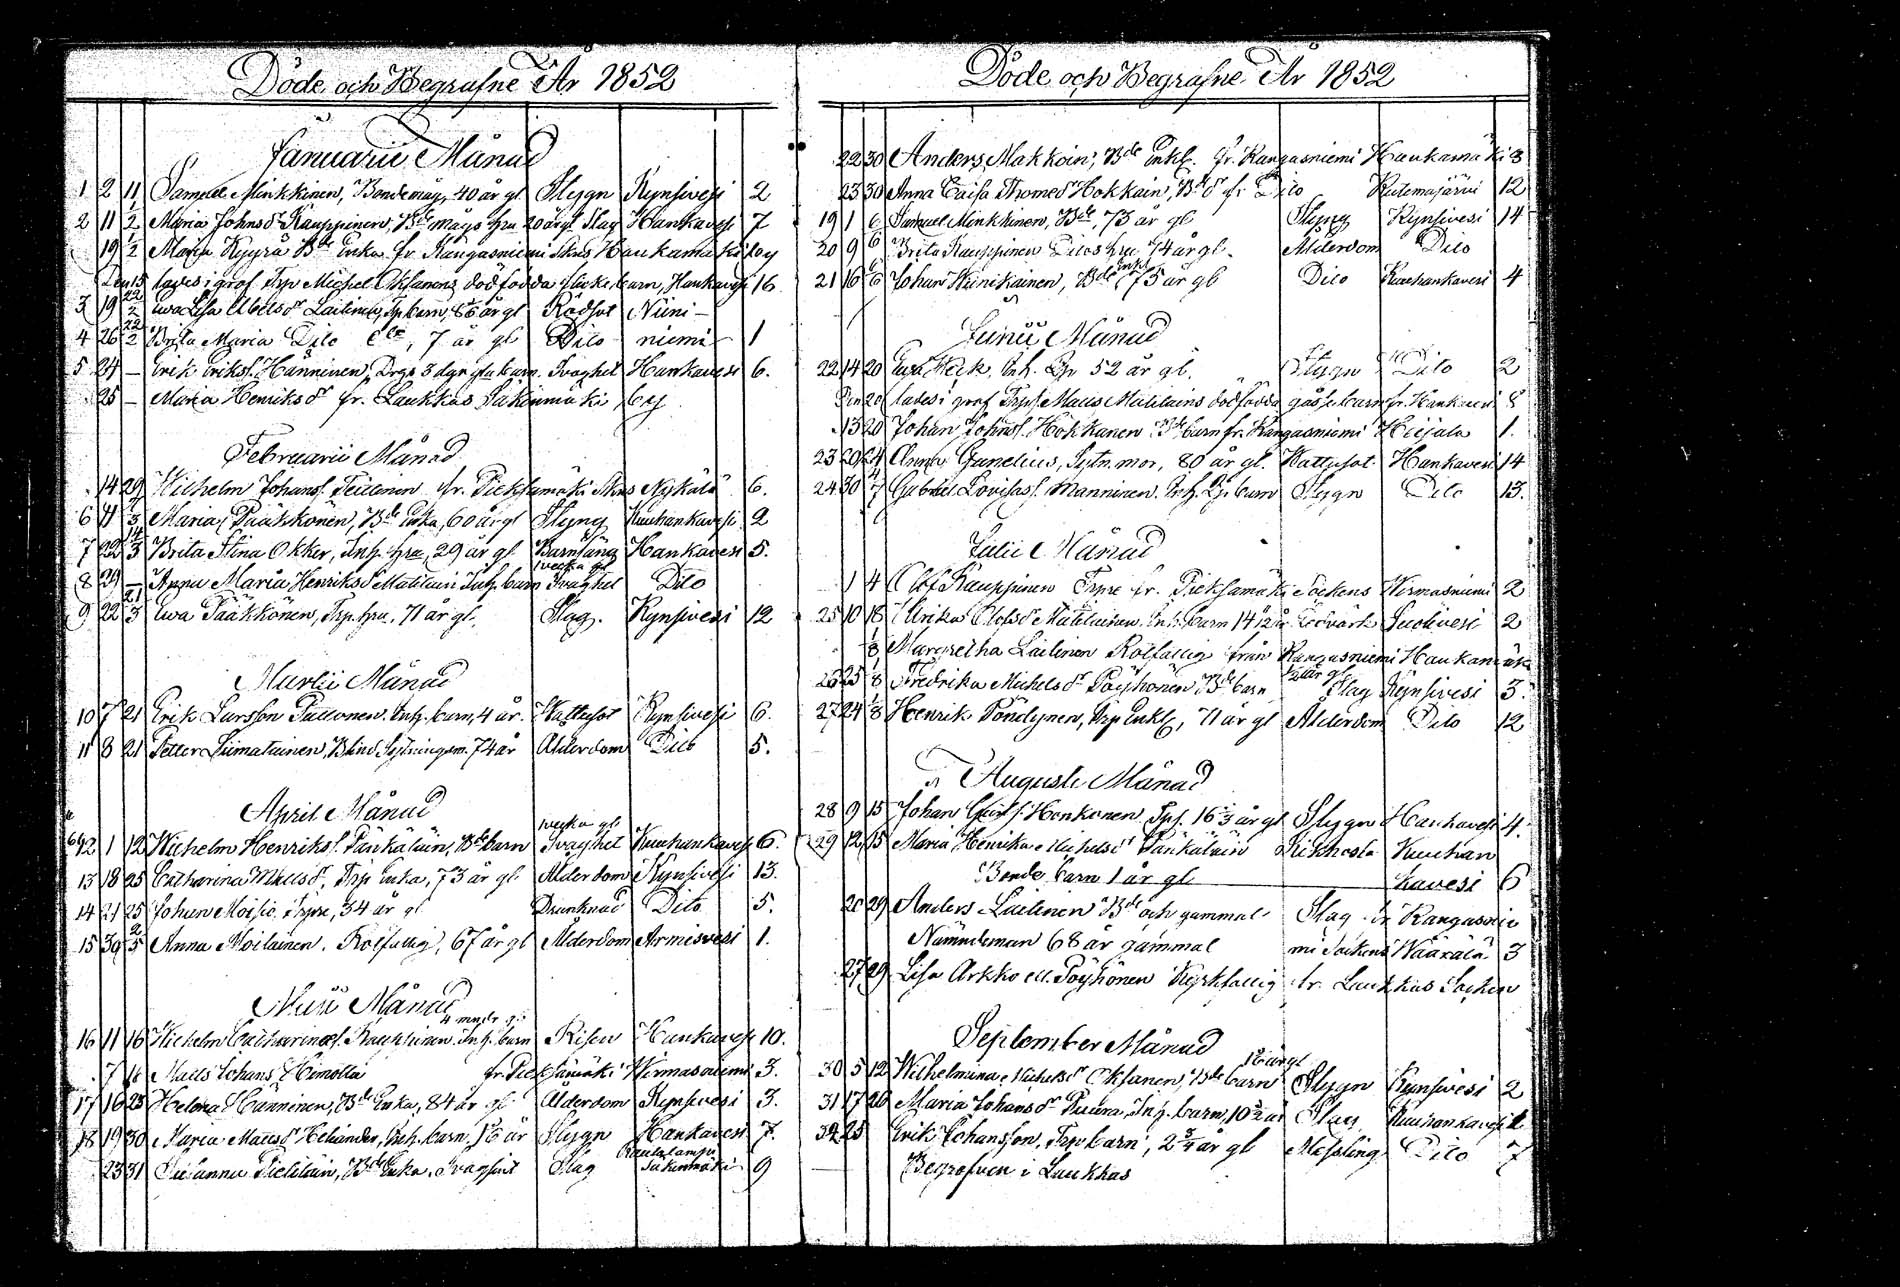 Döde och Begrafne År 1852
Januarii Månad
1 2 11 Samuel Minkkinen, Bondemåg, 40 år gl. Stygn Kynsivesi 2
2 11 1/2 Maria Johnsdr Kauppinen, Bde mågs hru 20 år gl. Slag Hankavesi 7
19 1/2 Maria Kyyrä Bde Enka fr. Kangasniemi Skns Haukamäki by
Den 15 lades i graf Trp Michel Oksanens dödfödda flickebarn, Hankavesi 16
3 19 22/2 Ewa Lisa Abelsdr Laitinen, Trp barn, år gl Rödsot Niini-
4 26 22/2 Brita Maria Dito 7 år gl Dito niemi 1
5 24 — Erik Erikss. Hänninen, Drgs 3 dgr glt barn. Svaghet Hankavesi 6.
25 — Maria Henriksdr fr. Laukkas by
Februarii Månad
14 29 Wilhelm Johanss. Teittinen fr. Pieksämäki Skns Nykälä 6.
6 11 Maria Pääkkönen, Bde Enka, 60 år gl Stygn Kuuhankavesi 2
7 22 14/3 Brita Stina Okker, Inh. hru, 29 år gl Barnsäng Hankavesi 5.
8 24 — Anna Maria Henriksdr Matilain Inh. barn vecka gl Svaghet Dito
9 22 21/3 Ewa Pääkkönen, Trp. hru, 71 år gl. Slag. Kynsivesi 12
Martii Månad
10 7 21 Erik Larsson Puttonen. Inh. barn, 4 år. Wattusot Kynsivesi 6.
11 8 21 Petter Liimatainen, Blind Sytningsm. 74 år Ålderdom Dito 5.
April Månad
12 1 12 Wilhelm Henrikss. Pänkäläin, Bde barn vecka gl Svaghet Kuuhankavesi 6.
13 18 25 Catharina Mattsdr, Trp Enka, 73 år gl Ålderdom Kynsivesi 13.
14 21 25 Johan Moisio, Trpre, 34 år gl Drunknad Dito 5.
15 30 2/5 Anna Moilainen. Rotfattig, 67 år gl Ålderdom Armisvesi 1.
Maii Månad
16 11 16 Wilhelm Catharinas. Kauppinen. Inh. barn 4 mndr gl Risen Hankavesi 10.
7 Matts Johans. Himotta fr. Pieksämäki Wirmasniemi 3.
17 16 23 Helena Hänninen, Bde Enka, 84 år gl Ålderdom Kynsivesi 3.
18 19 30 Maria Mattsdr Helander, Inh. barn. år Stygn Hankavesi 7.
23 31 Susanna Pietiläin, Bde Enka. Slag Rautalampi 9
Döde och Begrafne År 1852
22 30 Anders Makkoin, Bde Enkl. fr. Kangasniemi Haukamäki 3
23 30 Anna Caisa Thomedr Hokkain, Bde dr fr Dito Kutemajärvi 12
19 1 6 Samuel Minkkinen, Bde, 73 år gl Stygn Kynsivesi 14
20 9 6 Brita Kauppinen hru 74 år gl. Ålderdom Dito
21 16 6 Johan Hiinikainen, Bde Enkl 75 år gl Dito Kuuhankavesi 4
Junii Månad
22 14 20 Ewa Heck, Inh. 52 år gl. Stygn Dito 2
Den 20 lades i graf Trps Matts Matilains dödfödda gåssebarn fr. Hankavesi 8
13 20 Johan Johns. Hokkanen Bde barn fr. Kangasniemi Hiejala 1.
23 20 24 Anna Ganelius, Sytn. mor, 80 år gl. Wattusot. Hankavesi 14
24 30 Gabriel Lovisas. Manninen. Inh. barn Stygn Dito 13.
Julii Månad
1 4 Olof Kauppinen Trpre fr. Pieksämäki Sockens Wirmasniemi 2
25 10 18 Ulrika Olofsdr Matilainen. Inh. barn Suolivesi 2
1/8 Margretha Laitinen Rotfattig från Kangasniemi Haukamäki
26 25 1/8 Fredrika Michelsdr Pöyhönen Bde barn år gl Slag Kynsivesi 3.
27 24 1/8 Henrik Pöndynen, Trp Enkl, 71 år gl Ålderdom Dito 12
Augusti Månad
28 9 15 Johan Honkonen, Tps. 16 1/3 år gl Stygn Hankavesi 4.
29 12 15 Maria Henrika Michelsdr Pänkäläin Kikhosta Kuuhan
Bonde barn 1 år gl kavesi 6
20 29 Anders Laitinen Bde och gammal Slag fr Kangasnie
Nämndeman 68 år gammal mi Sockens Wäärälä 3
27 29 Lisa Arkko ell. Pöyhönen Kyrkfattig fr. Laukkas Socken
September Månad
30 5 12 Wilhelmina Michelsdr Oksanen, Bde barn år gl Stygn Kynsivesi 2
31 17 26 Maria Johansdr Puura, Inh. barn, 10 år Slag Kuuhankavesi
32 25 Erik Johansson, Trp barn, 2 3/4 år gl Messling Dito 7
Begrafven i Laukkas